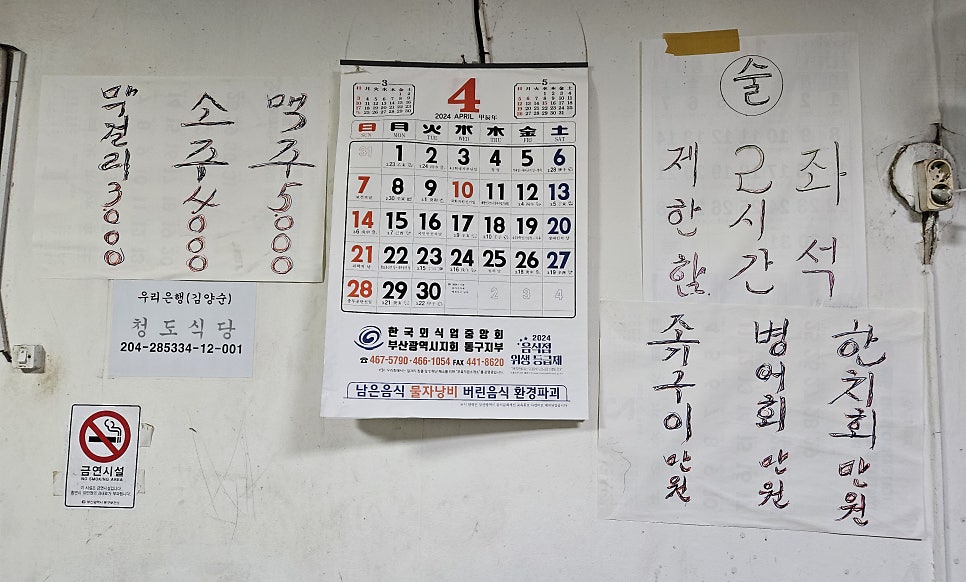 맥주5000
소주4000
막걸리3000
우리은행(김양순)
청도식당
204-285334-12-001
금연시설
NO SMOKING AREA
3
4
5
2024 APRIL 甲辰年
日 月 火 水 木 金 土
SUN MON TUE WED THU FRI SAT
31 1 2 3 4 5 6
7 8 9 10 11 12 13
14 15 16 17 18 19 20
21 22 23 24 25 26 27
28 29 30 2 3 4
한국외식업중앙회
부산광역시지회 동구지부
☎467-5790·466-1054 FAX 441-8620
2024
음식점
위생등급제
남은음식 물자낭비 버린음식 환경파괴
술
좌석
2시간
제한함
한치회 만원
병어회 만원
조기구이 만원